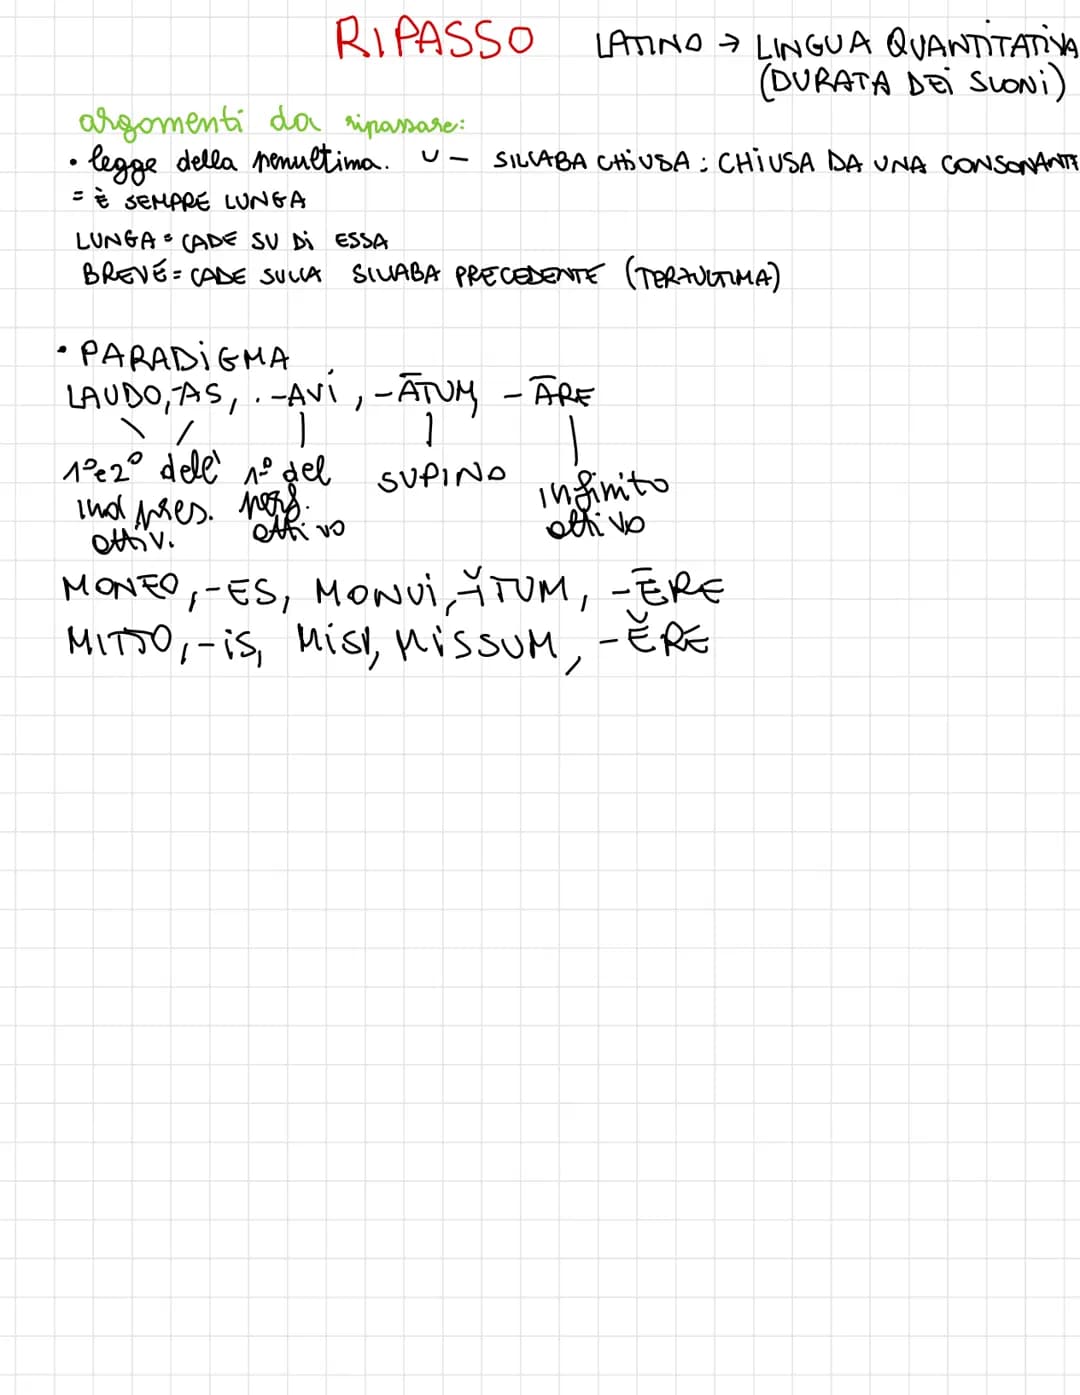 RIPASSO LATINO → LINGUA QUANTITATIVA
(DURATA DEI SUONI)
argomenti da ripassare:
• legge della penultima. ∪ – SILLABA CHIUSA : CHIUSA DA UNA CONSONANTE
= è SEMPRE LUNGA
LUNGA = CADE SU DI ESSA
BREVE = CADE SULLA SILLABA PRECEDENTE (TERZULTIMA)
• PARADIGMA
LAUDO, -AS, . -AVI, -ĀTUM, -ĀRE
1° e 2° dell' 1° del SUPINO infinito
ind pres. perf. attivo
attiv. attivo
MONEO, -ES, MONUI, -ĬTUM, -ĒRE
MITTO, -IS, MISI, MISSUM, -ĔRE